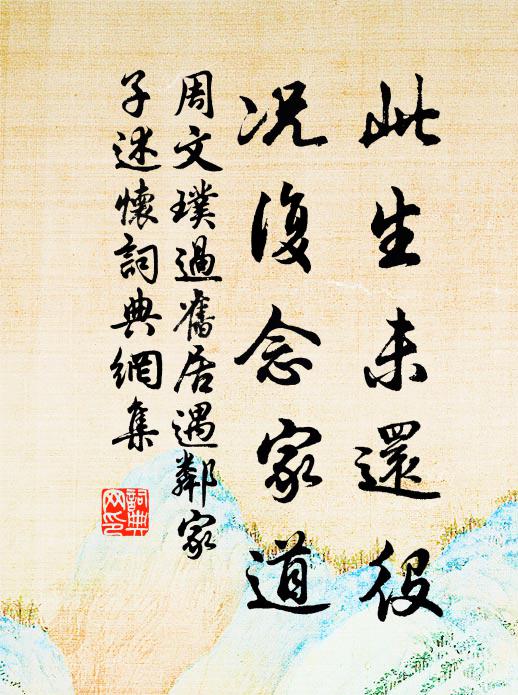 此生未還役
况復念家道
周文璞過舊居遇鄰家
子述懷詞典網集
詞典
网印